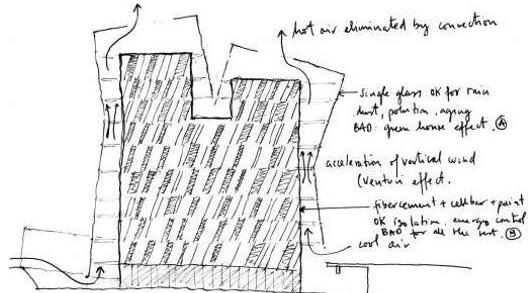 hot air eliminated by convection
single glass OK for rain
dust, polution, aging
BAD: green house effect. A
acceleration of vertical wind
(venturi effect.
fibercement + + paint
OK isolation. energy control
BAD for all the rest. B
cool air